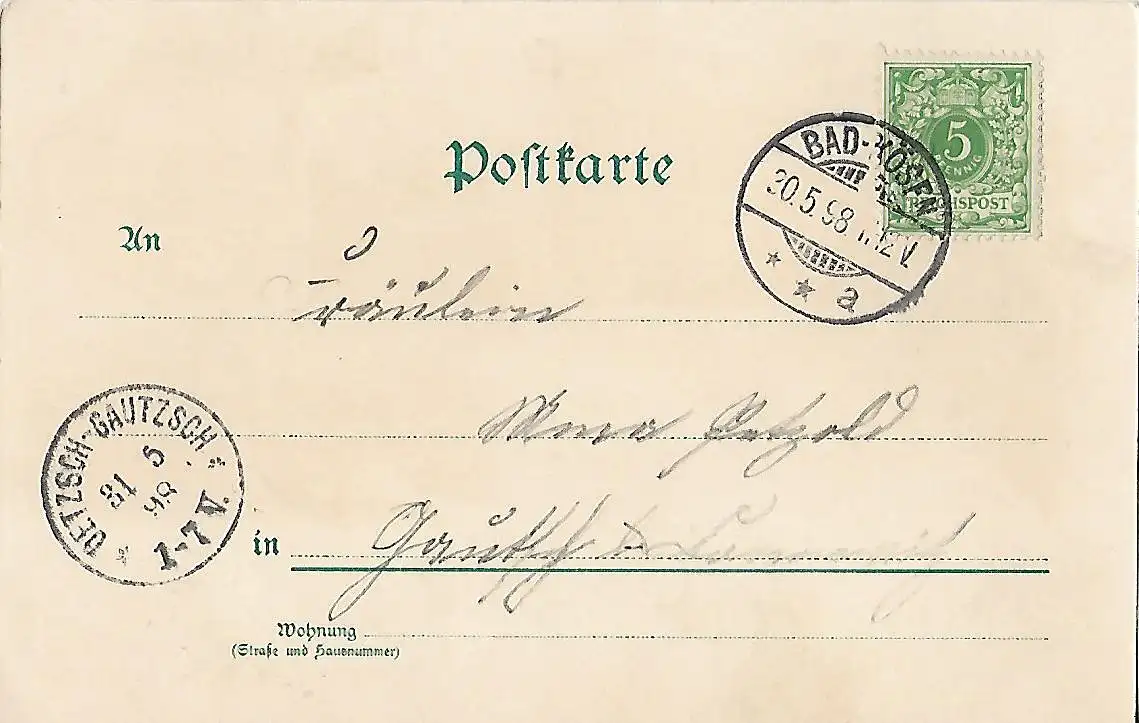 Postkarte
5
PFENNIG
REICHSPOST
BAD-KÖSEN
30.5.98 11-12 V.
* * a
An
Fräulein
Petzold
OETZSCH-GAUTZSCH
31 5
98
1-7 V.
in Gautzsch b.
Wohnung
(Straße und Hausnummer)